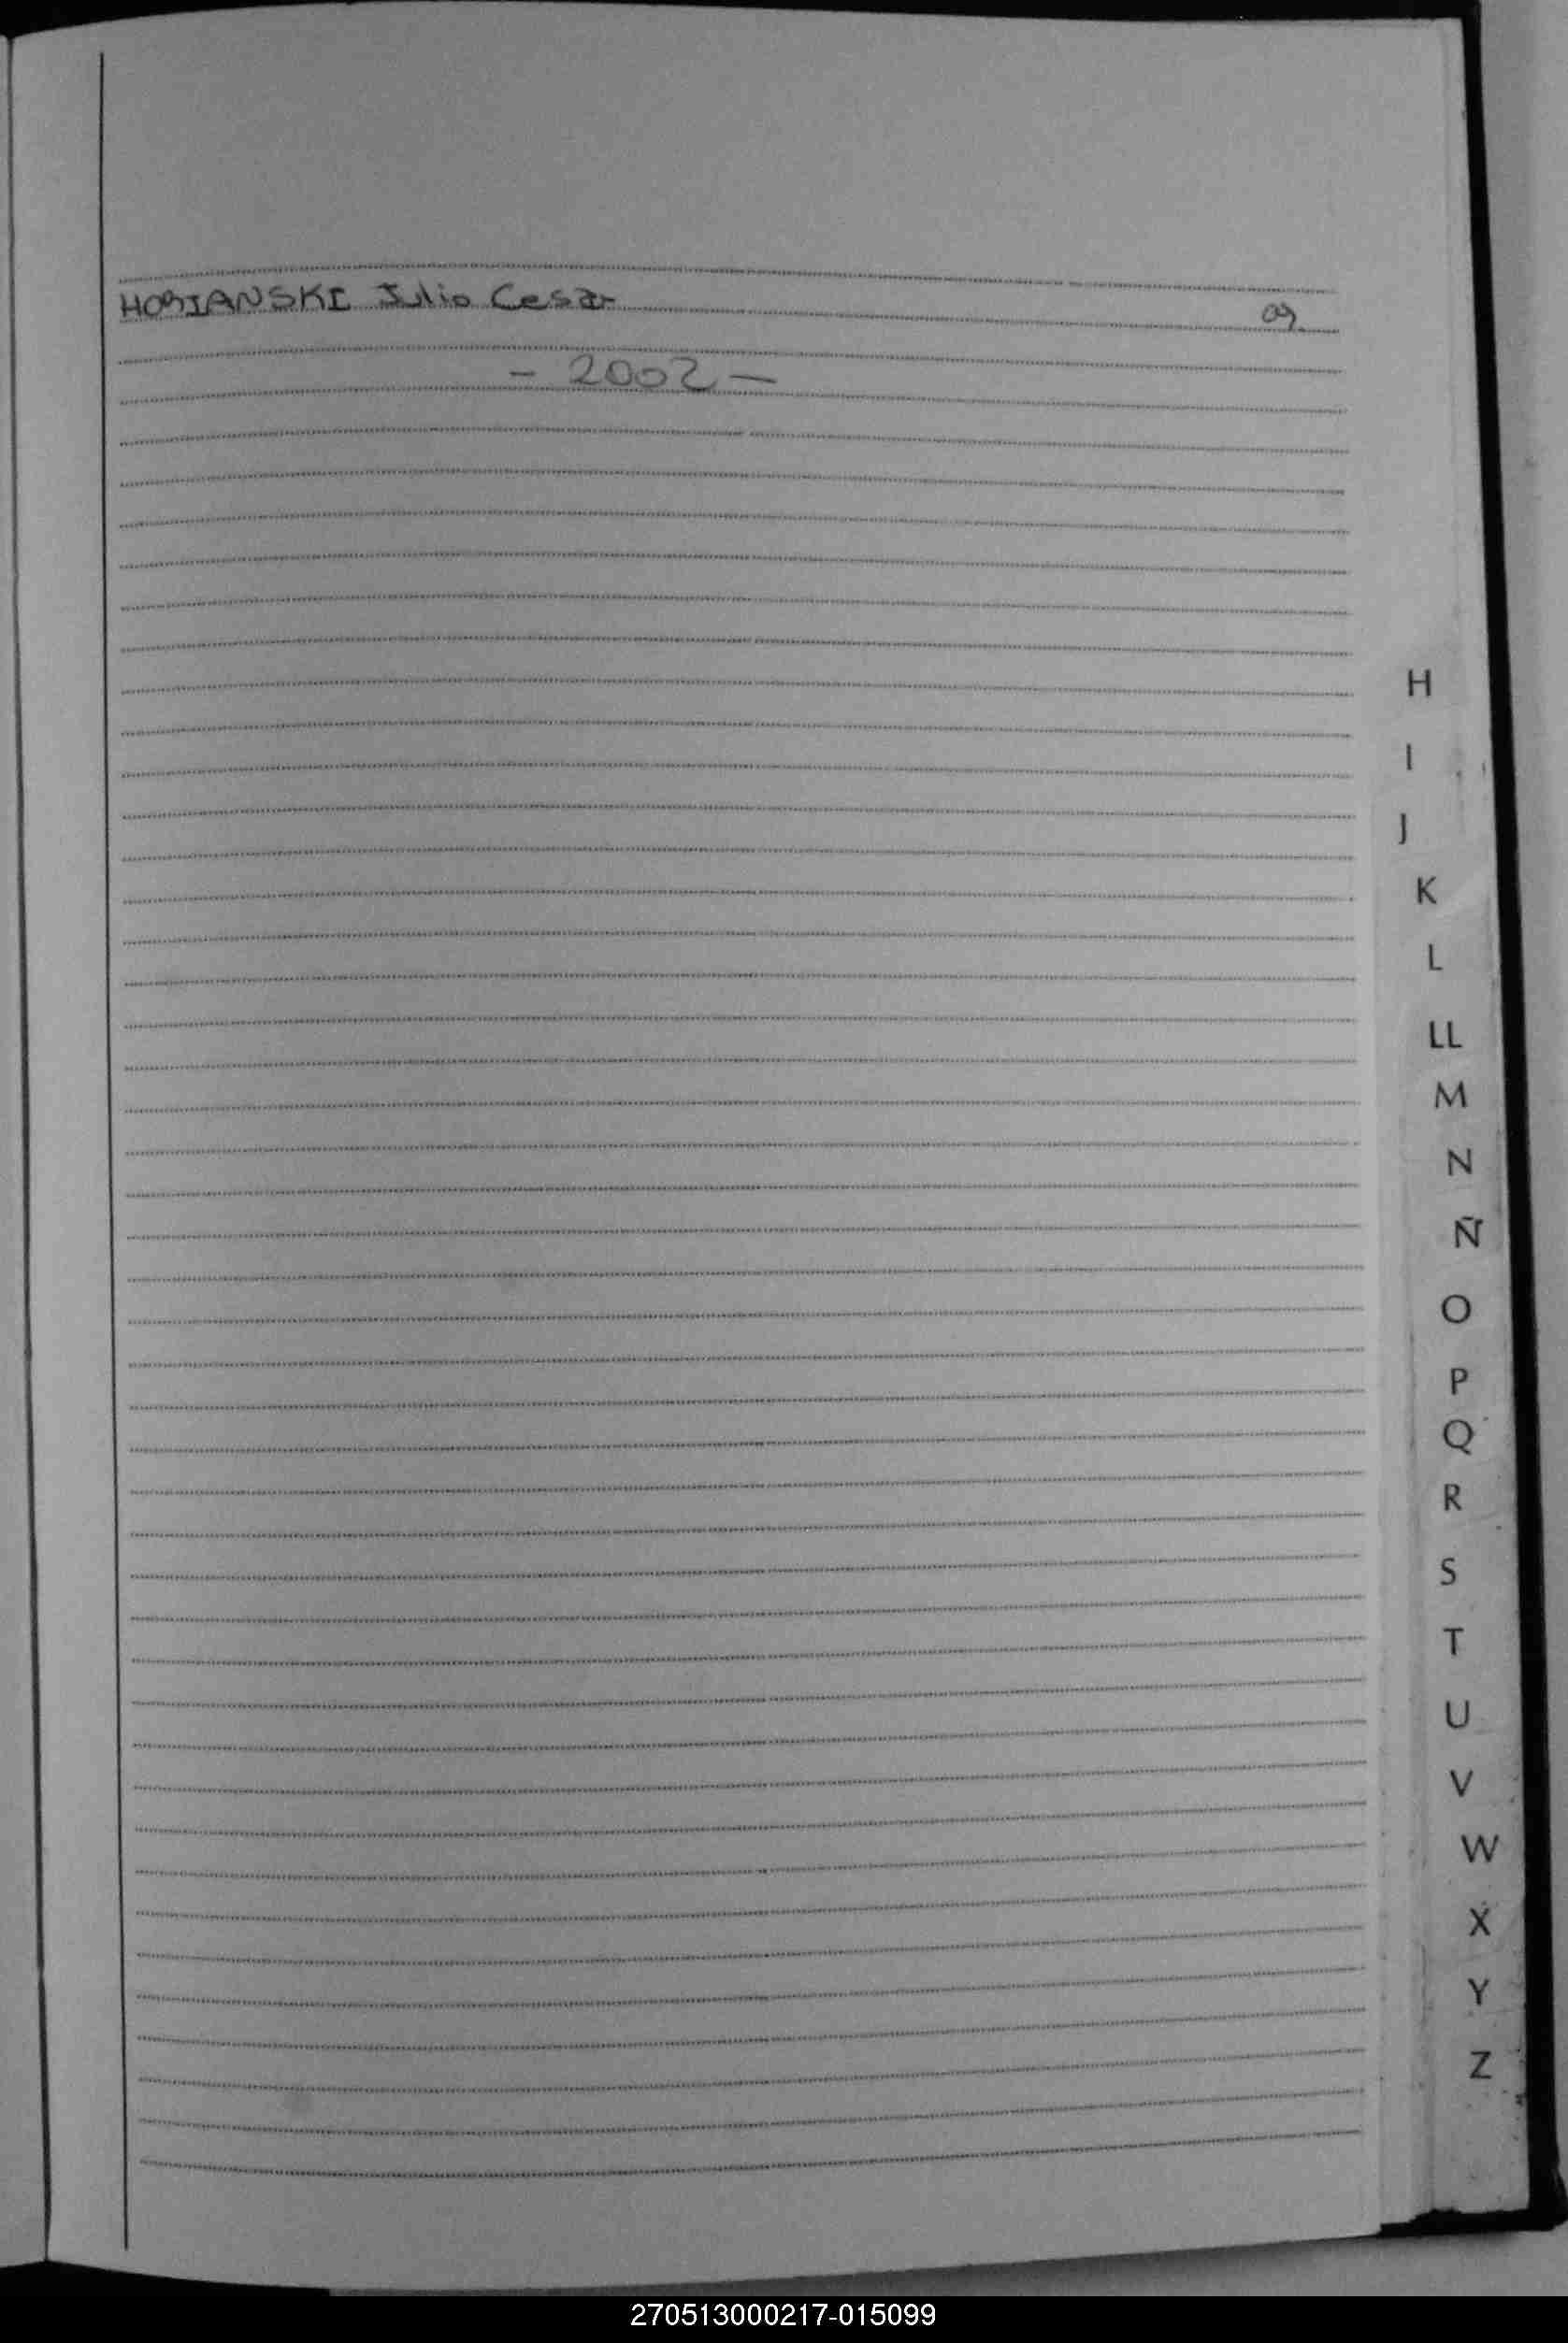 HOBIANSKI Julio Cesar 09
- 2002 -
H
I
J
K
L
LL
M
N
Ñ
O
P
Q
R
S
T
U
V
W
X
Y
Z
270513000217-015099